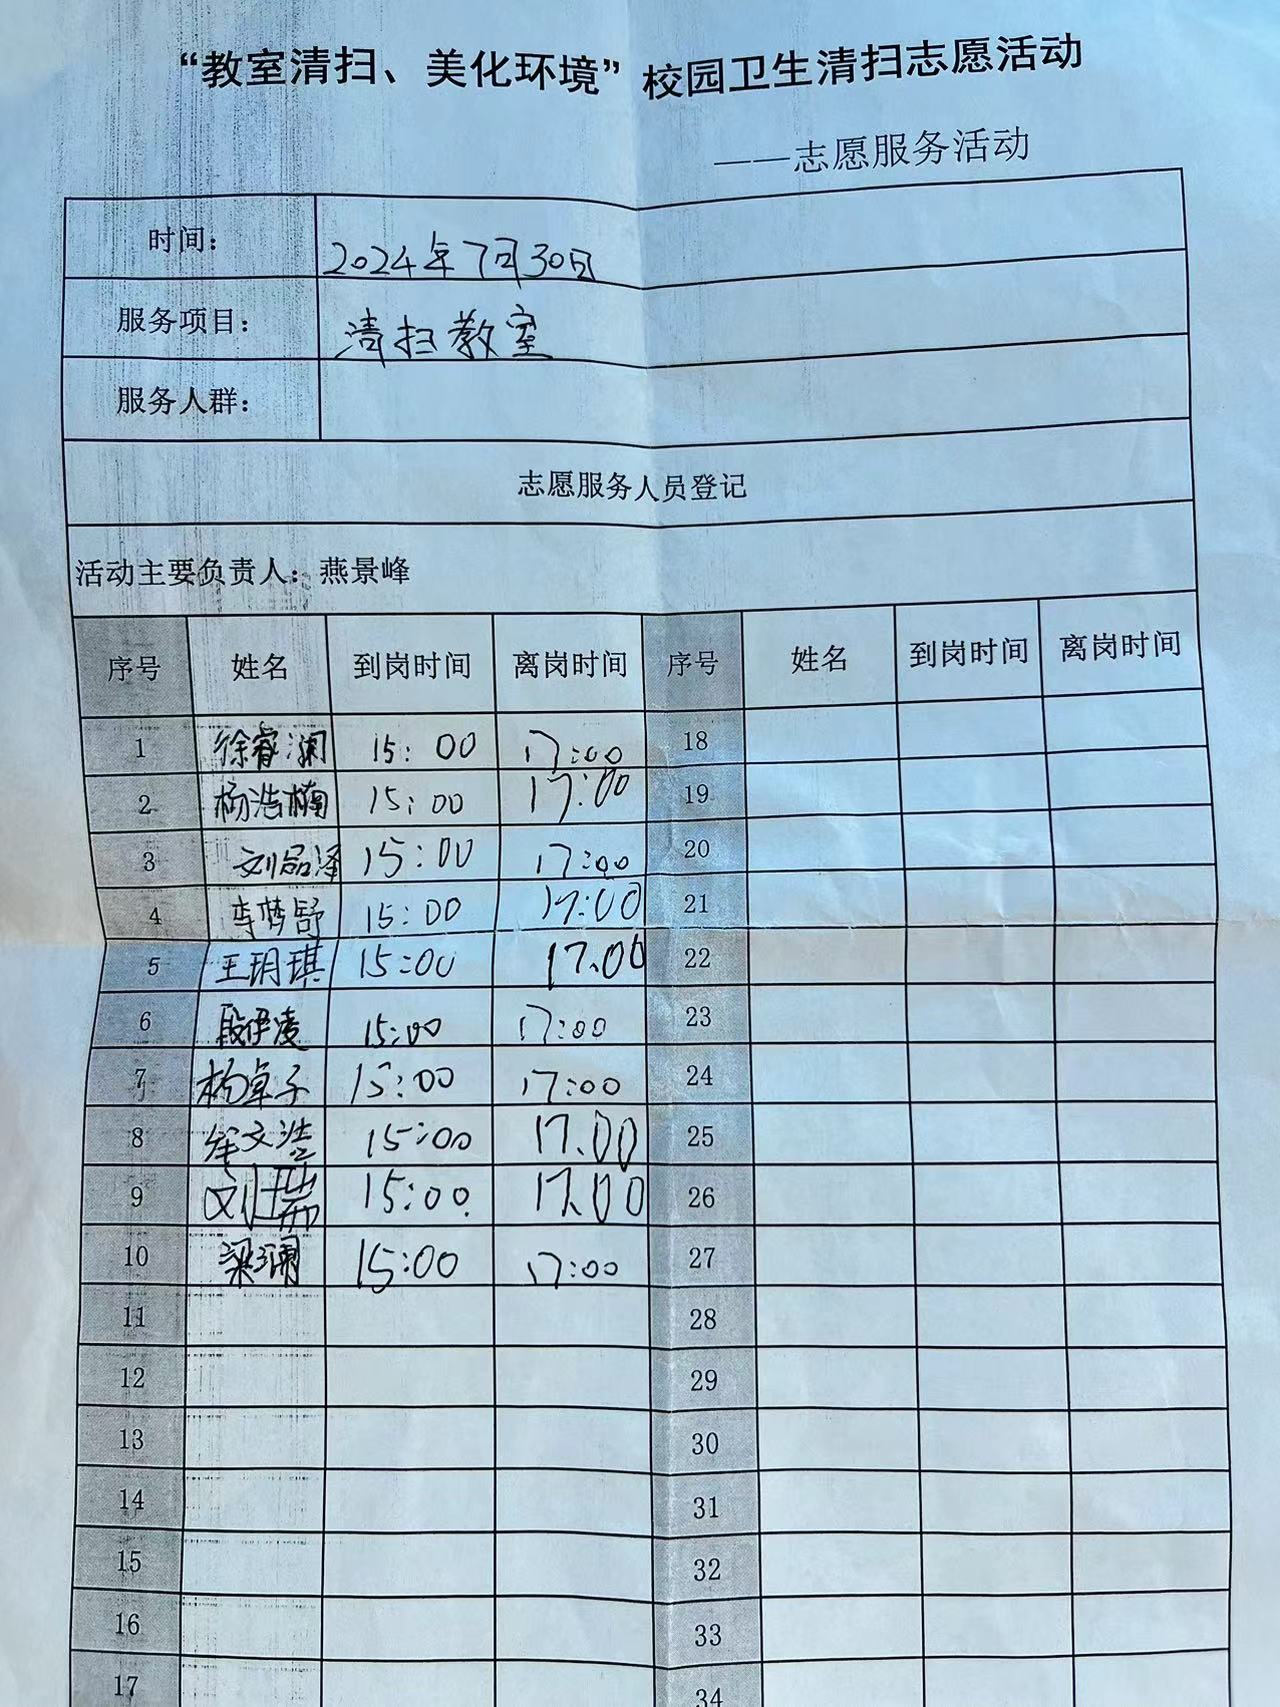 “教室清扫、美化环境”校园卫生清扫志愿活动
——志愿服务活动
时间： 2024年7月30日
服务项目： 清扫教室
服务人群：
志愿服务人员登记
活动主要负责人：燕景峰
序号 姓名 到岗时间 离岗时间 序号 姓名 到岗时间 离岗时间
1 徐睿澜 15：00 17:00 18
2 杨浩楠 15：00 17:00 19
3 刘品泽 15:00 17:00 20
4 李梦舒 15:00 17:00 21
5 王玥琪 15:00 17.00 22
6 段伊凌 15:00 17:00 23
7 杨卓子 15:00 17:00 24
8 文浩 15:00 17.00 25
9 刘瑞 15:00. 17.00 26
10 梁澜 15:00 17:00 27
11 28
12 29
13 30
14 31
15 32
16 33
17 34